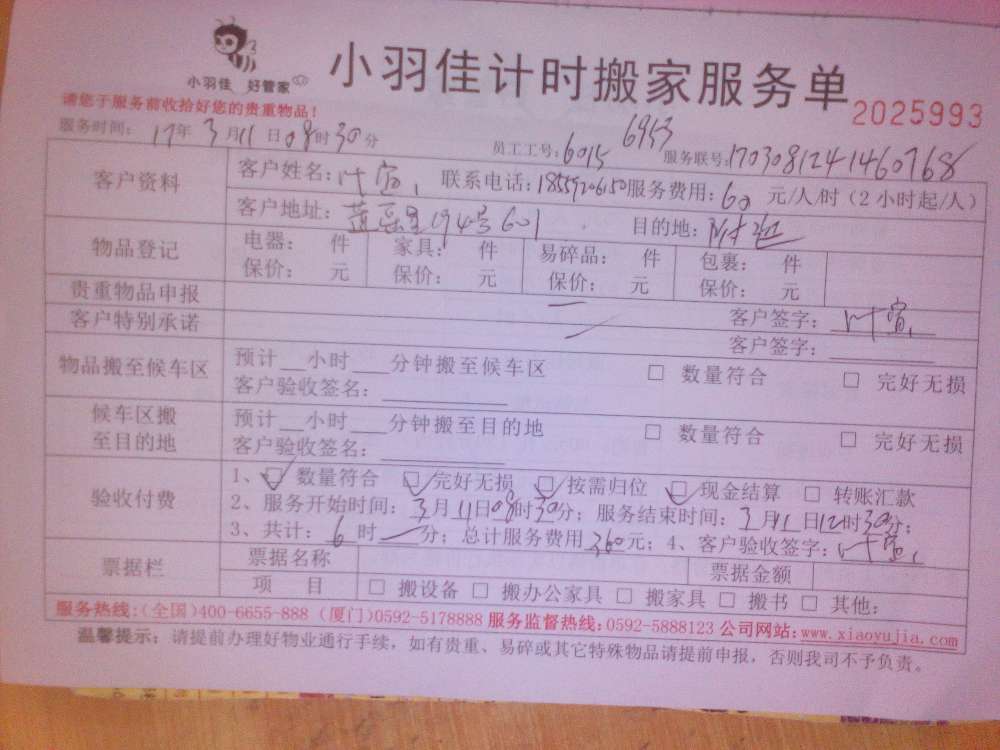 小羽佳 好管家
小羽佳计时搬家服务单
2025993
请您于服务前收拾好您的贵重物品！
服务时间： 17年 3月11日08时30分 员工工号：6015 6953 服务联号：17030812414607686
客户资料 客户姓名：叶 联系电话：18559206150 服务费用：60 元/人/时（2小时起/人）
客户地址：莲岳里194号601 目的地：附近
物品登记 电器： 件 家具： 件 易碎品： 件 包裹： 件
保价： 元 保价： 元 保价： 元 保价： 元
贵重物品申报 客户签字：叶
客户特别承诺 客户签字：
物品搬至候车区 预计__小时___分钟搬至候车区 □ 数量符合 □ 完好无损
客户验收签名：
候车区搬至目的地 预计__小时___分钟搬至目的地 □ 数量符合 □ 完好无损
客户验收签名：
验收付费 1、☑ 数量符合 ☑ 完好无损 ☑ 按需归位 ☑ 现金结算 □ 转账汇款
2、服务开始时间：3月11日08时30分；服务结束时间：3月11日12时30分；
3、共计：6时一分；总计服务费用360元；4、客户验收签字：叶
票据栏 票据名称 票据金额
项 目 □ 搬设备 □ 搬办公家具 □ 搬家具 □ 搬书 □ 其他：
服务热线：（全国）400-6655-888 （厦门）0592-5178888 服务监督热线：0592-5888123 公司网站：www.xiaoyujia.com
温馨提示：请提前办理好物业通行手续，如有贵重、易碎或其它特殊物品请提前申报，否则我司不予负责。